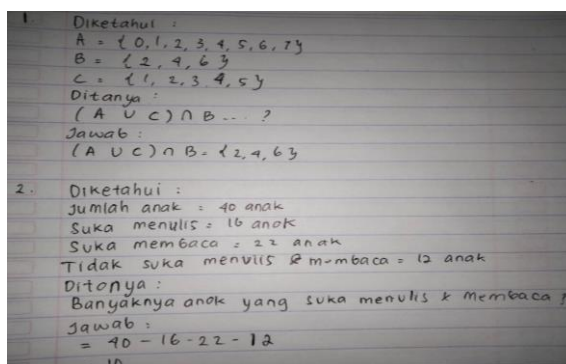 1. Diketahui :
A = { 0, 1, 2, 3, 4, 5, 6, 7 }
B = { 2, 4, 6 }
C = { 1, 2, 3 4, 5 }
Ditanya :
( A ∪ C ) ∩ B ... ?
Jawab :
( A ∪ C ) ∩ B = { 2, 4, 6 }
2. Diketahui :
Jumlah anak = 40 anak
Suka menulis = 16 anak
Suka membaca = 22 anak
Tidak suka menulis & membaca = 12 anak
Ditanya :
Banyaknya anak yang suka menulis & membaca ?
Jawab :
= 40 - 16 - 22 - 12